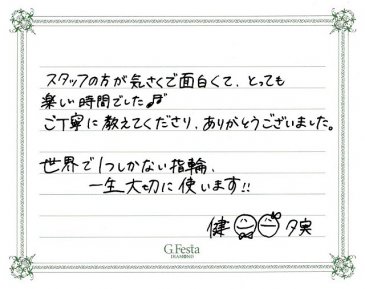 スタッフの方が気さくで面白くて、とっても
楽しい時間でした♬
ご丁寧に教えてくださり、ありがとうございました。
世界で1つしかない指輪、
一生大切に使います!!
健 夕実
G.Festa
DIAMOND